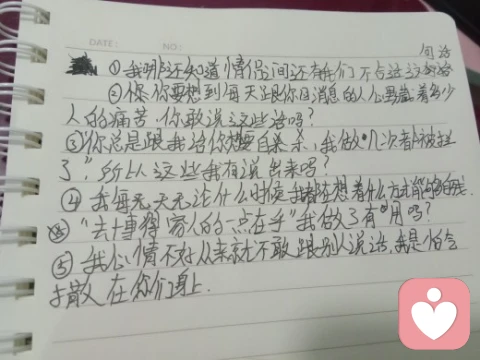 DATE: NO:
句话
①我哪还知道情侣之间还有我们不合适这句话
②你要想到每天跟你回消息的人心里藏着多少
人的痛苦,你敢说这些话吗?
③"你总是跟我说你想要自杀,我做几次都被拦
了",所以这些我有说出来吗?
④我每天无论什么时候我都在想着什么方式能够自杀
"去博得家人的一点在乎"我做了有用吗?
⑤我心情不好从来就不敢跟别人说话,我是怕会
扩散在你们身上.